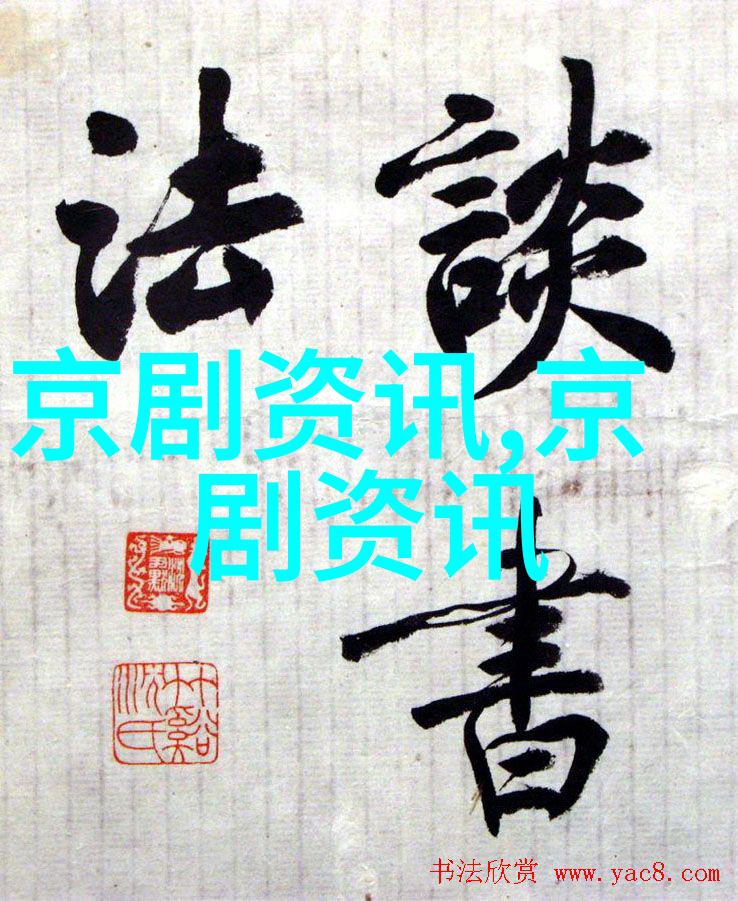 談書
法
京剧资讯,京
剧资讯
竹谿沈氏
书法欣赏 www.yac8.com